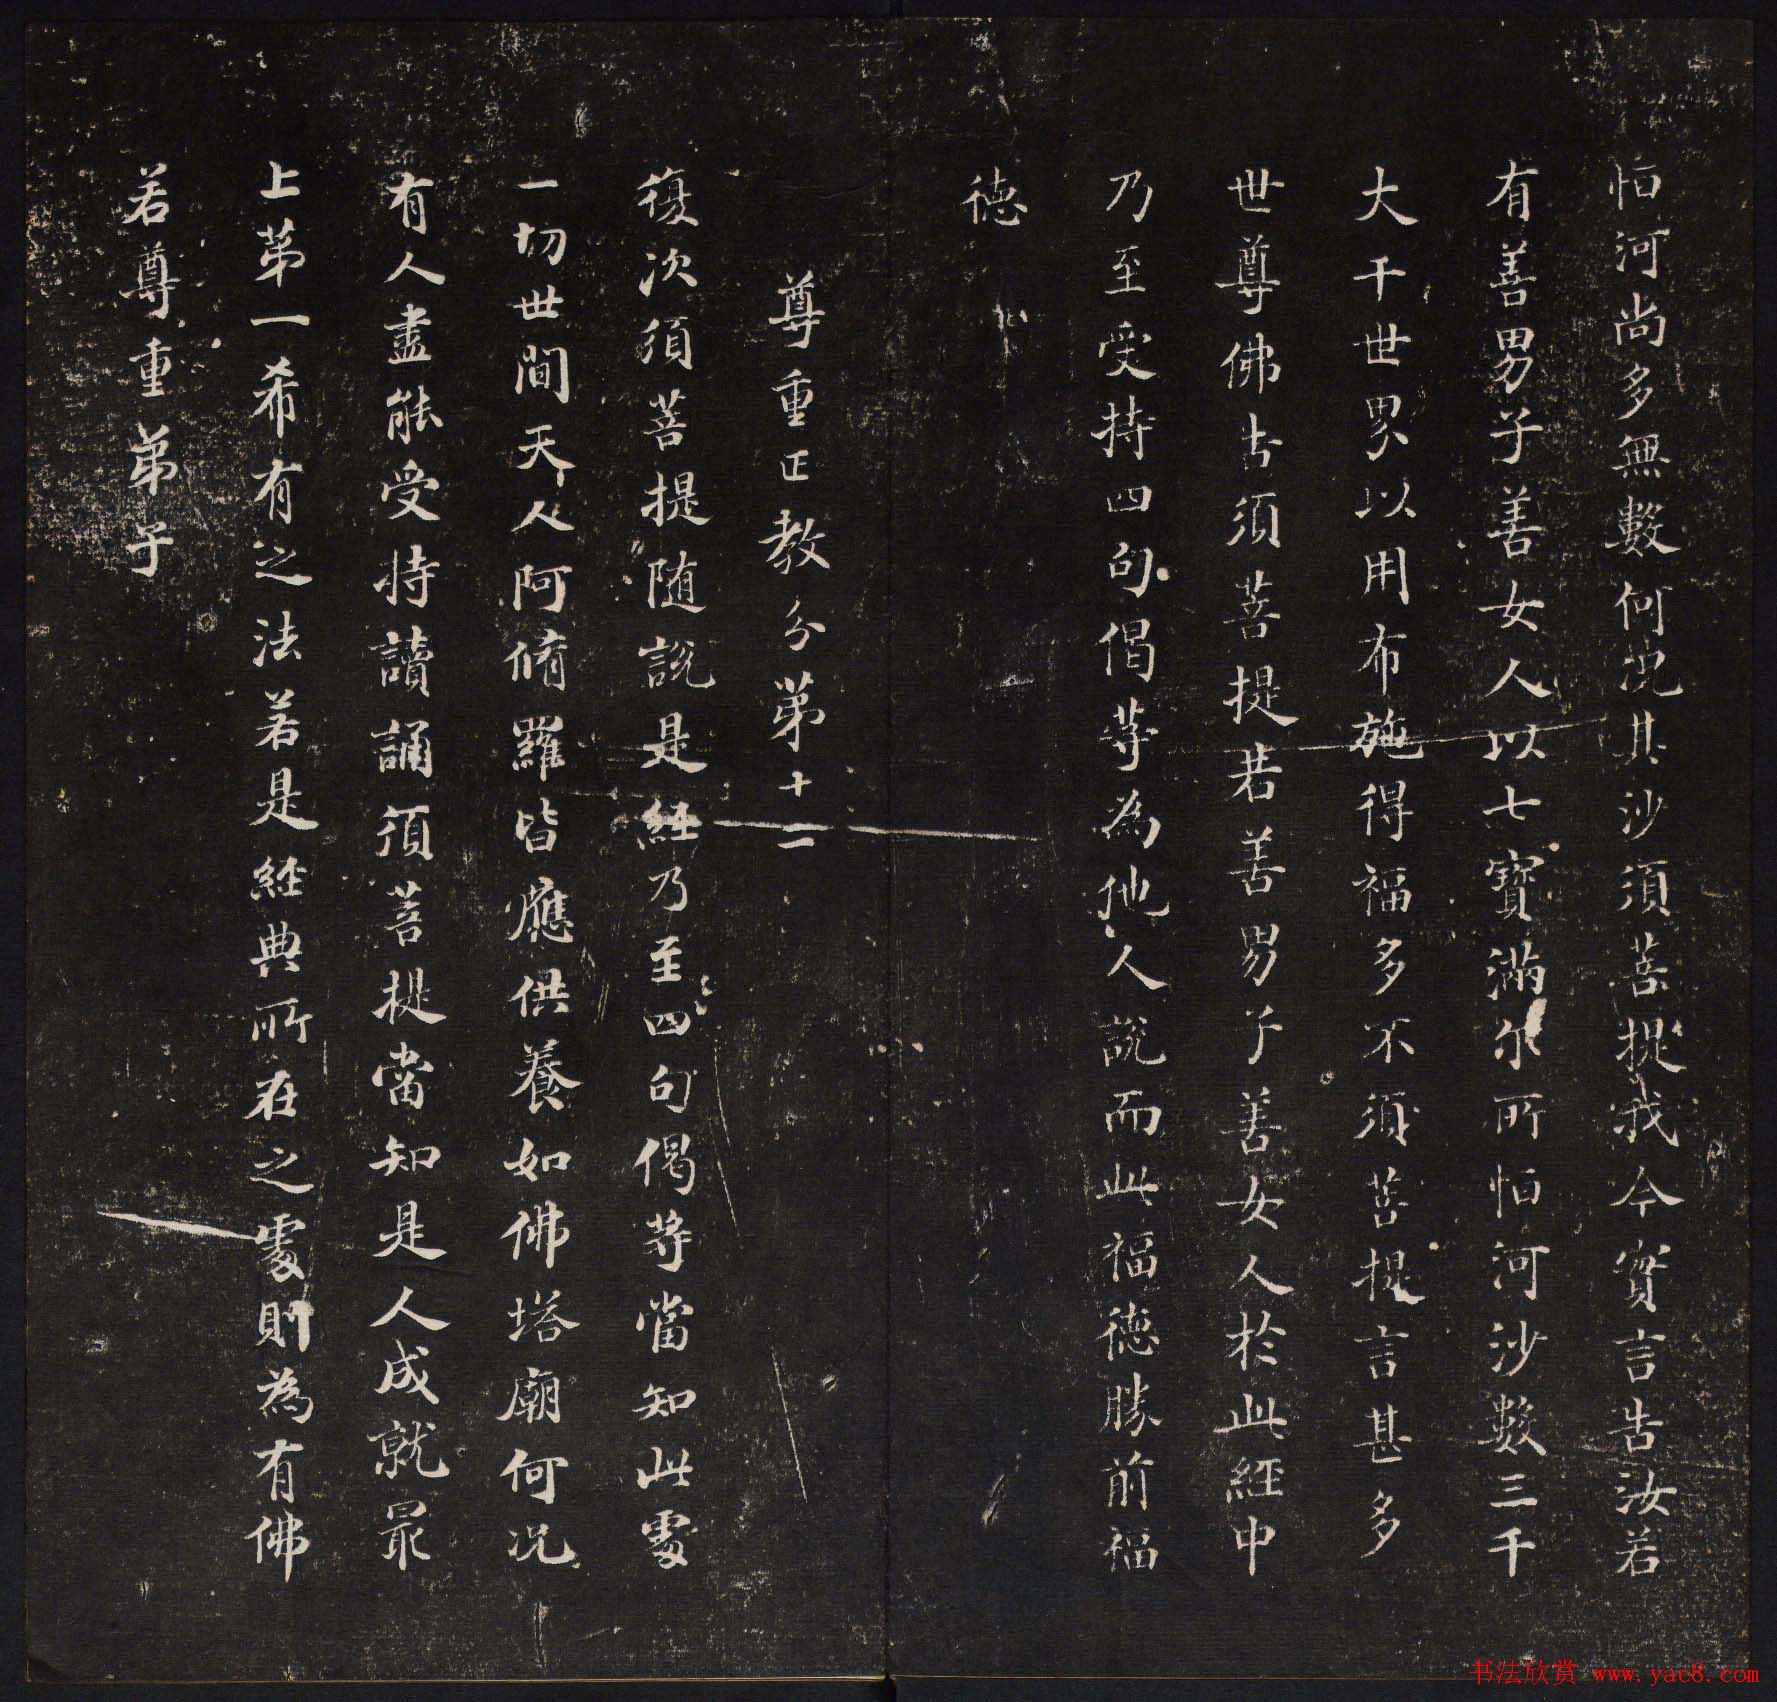 恒河尚多無數何況其沙須菩提我今實言告汝若
有善男子善女人以七寶滿尔所恒河沙數三千
大千世界以用布施得福多不須菩提言甚多
世尊佛告須菩提若善男子善女人於此經中
乃至受持四句偈等為他人說而此福德勝前福
德
尊重正教分第十二
復次須菩提随說是經乃至四句偈等當知此處
一切世間天人阿脩羅皆應供養如佛塔廟何况
有人盡能受持讀誦須菩提當知是人成就最
上第一希有之法若是經典所在之處則為有佛
若尊重弟子
书法欣赏 www.yac8.com